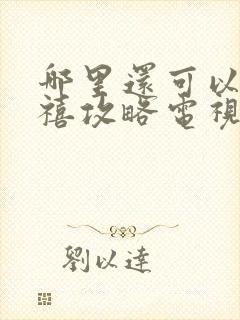 哪里還可以
禧攻略電視
劉以達